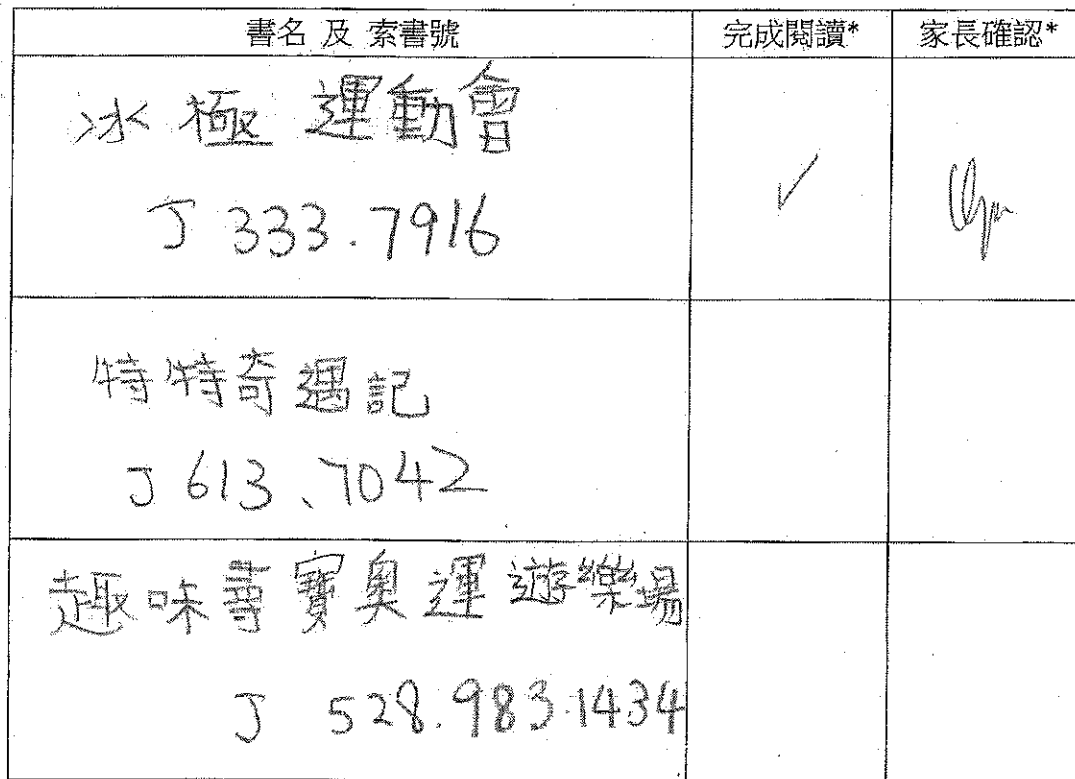 書名 及 索書號 完成閱讀* 家長確認*
冰極運動會
J 333.7916
✓
特特奇遇記
J 613.7042
趣味尋寶奧運遊樂場
J 528.983.1434